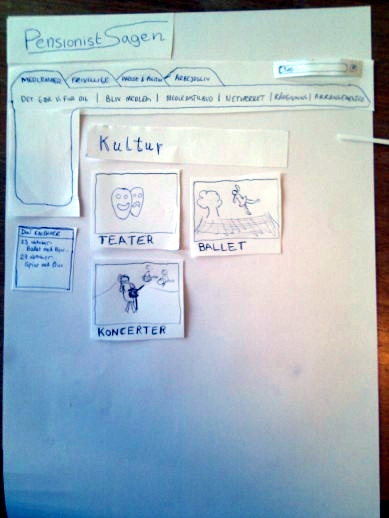 PensionistSagen
MEDLEMMER FRIVILLIGE PRESSE & POLITIK ARBEJDSLIV
DET GØR VI FOR DIG | BLIV MEDLEM | MEDLEMSTILBUD | NETVÆRKET | RÅDGIVNING | ARRANGEMENTER
Kultur
TEATER
BALLET
DIN KALENDER
23 oktober:
Ballet med
29 oktober:
med
KONCERTER